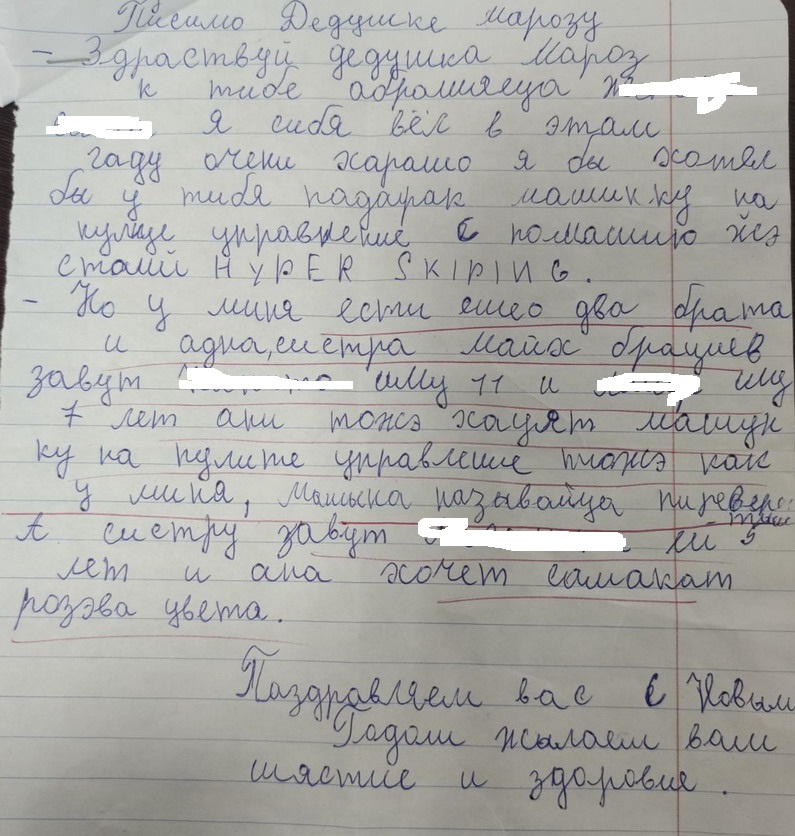 Писимо Дедушке марозу
- Здраствуй дедушка Мароз
к тибе абрашяеца
. Я сибя вёл в этам
гаду очени харашо я бы хотял
бы у тибя падарак машинку на
управление с помашию
HYPER SKIPING.
- Но у миня ести ишео два брата
и адна, систра майх брациев
завут иму 11 и иму
7 лет ани тожэ хацят машын
ку на пулите управление тожэ как
у миня, Машына називайца пиревер
тыш
А систру завут ей 5
лет и ана хочет самакат
розэва цвета.
Паздравляем вас с Новым
Годам жылаем вам
шястие и здоровие.